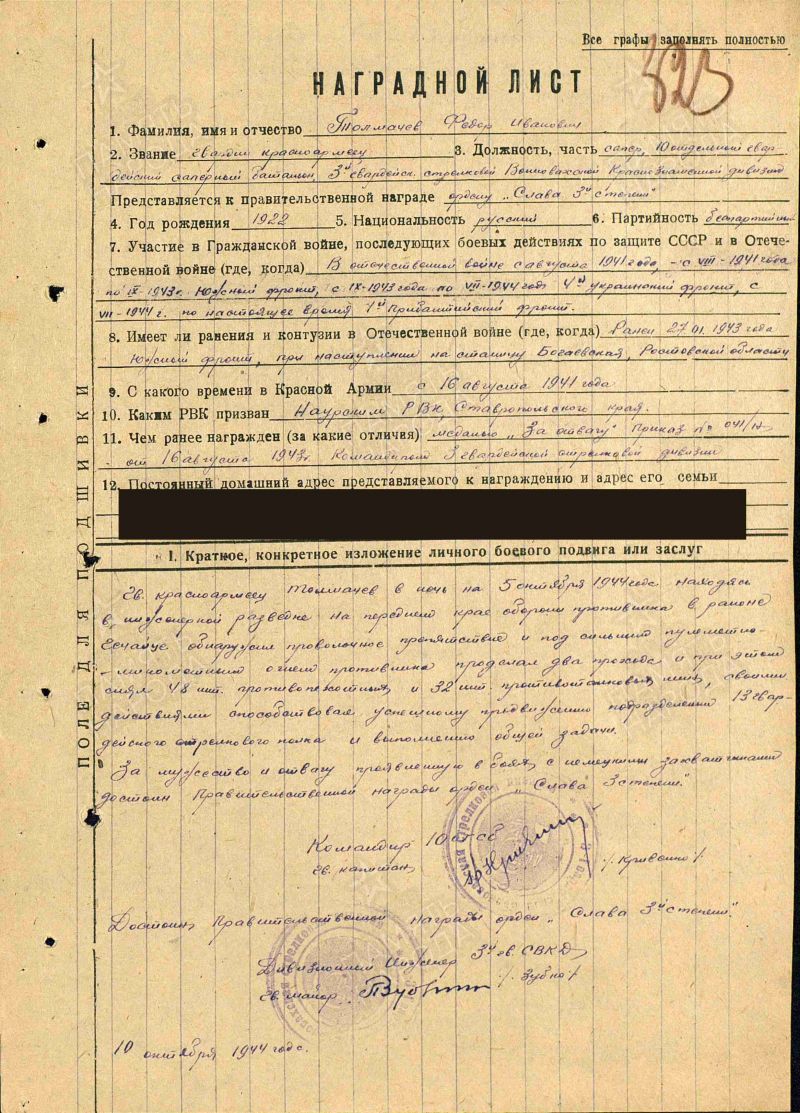 Все графы заполнять полностью
323
НАГРАДНОЙ ЛИСТ
1. Фамилия, имя и отчество Толмачев Федор Иванович
2. Звание гвардии красноармеец 3. Должность, часть сапер, 10 отдельный гвар-
дейский саперный батальон, 3й гвардейск. стрелковой Волновахской Краснознаменной дивизии
Представляется к правительственной награде ордену „Слава 3й степени"
4. Год рождения 1922 5. Национальность русский 6. Партийность беспартийный
7. Участие в Гражданской войне, последующих боевых действиях по защите СССР и в Отече-
ственной войне (где, когда) В отечественной войне с августа 1941 года, – с VIII-1941 года
по IX-1943г. Южный фронт, с IX-1943 года по VII-1944 год 4й украинский фронт, с
VII-1944 г. по настоящее время 1й Прибалтийский фронт.
8. Имеет ли ранения и контузии в Отечественной войне (где, когда) Ранен 27.01.1943 года
Южный фронт, при наступлении на станицу Богаевская, Ростовской области
9. С какого времени в Красной Армии с 16 августа 1941 года
10. Каким РВК призван Наурским РВК, Ставропольского края.
11. Чем ранее награжден (за какие отличия) медалью „За отвагу" Приказ №041/н
от 16 августа 1943г. Командиром 3 гвардейской стрелковой дивизии
12. Постоянный домашний адрес представляемого к награждению и адрес его семьи
I. Краткое, конкретное изложение личного боевого подвига или заслуг
ПОЛЕ ДЛЯ ПОДШИВКИ
Гв. красноармеец Толмачев в ночь на 5 октября 1944 года находясь
в инженерной разведке на переднем крае обороны противника в районе
обнаружил проволочное препятствие и под сильным пулеметно-
– минометным огнем противника проделал два прохода и при этом
снял 48 шт. противопехотных и 32 шт. противотанковых мин, своими
действиями способствовал успешному продвижению подразделений 13 гвар-
дейского стрелкового полка и выполнению общей задачи.
За мужество и отвагу проявленную в боях с немецкими захватчиками
достоин Правительственной награды орден „Слава 3 степени".
Командир 10 огсб
Гв. капитан /Кривенко/
Достоин Правительственной награды орден „Слава 3й степени".
Дивизионный Инженер 3й гв. СВКД
Гв. майор /Зубко/
10 октября 1944 года.